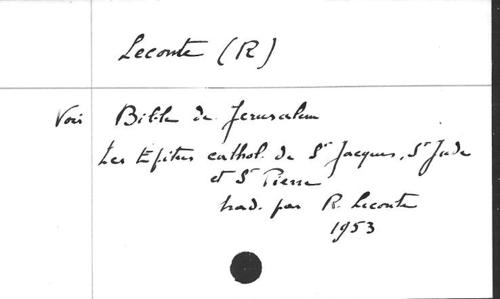 Leconte (R)
Voir Bible de Jerusalem
Les Epitres cathol. de St Jacques, St Jude
et St Pierre
trad. par R. Leconte
1953